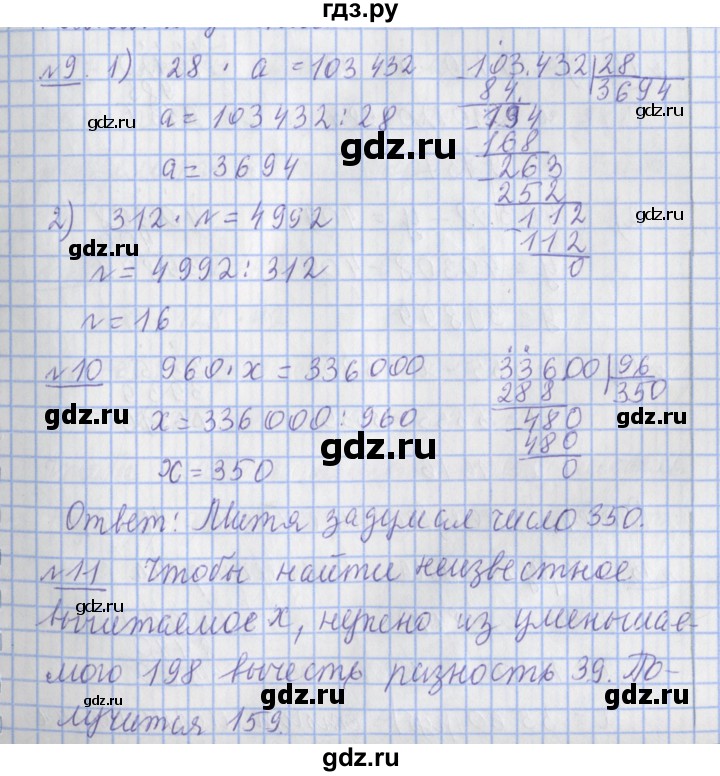 гдз.ру
№9. 1) 28 · a = 103 432
a = 103 432 : 28
a = 3694
103432 | 28
84 3694
194
168
263
252
112
112
0
2) 312 · n = 4992
n = 4992 : 312
n = 16
№10 960 · x = 336 000
x = 336 000 : 960
x = 350
33600 | 96
288 350
480
480
0
Ответ: Митя задумал число 350.
№11 Чтобы найти неизвестное
вычитаемое x, нужно из уменьшае-
мого 198 вычесть разность 39. По-
лучится 159.
gdz.ru
gdz.ru
gdz.ru
gdz.ru
gdz.ru
gdz.ru
gdz.ru
gdz.ru
gdz.ru
gdz.ru
gdz.ru
gdz.ru
gdz.ru
gdz.ru